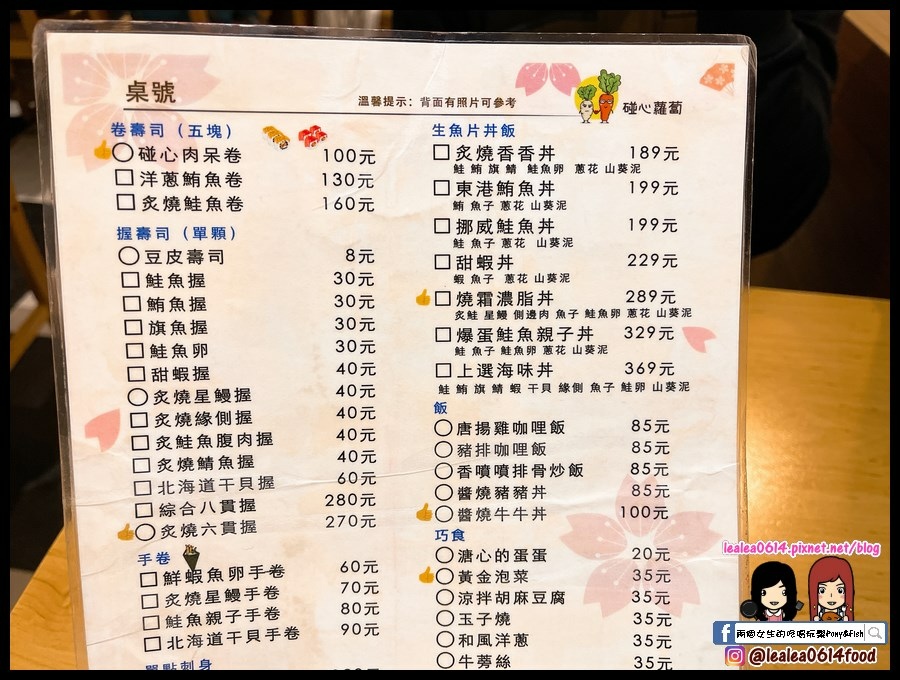 桌號
溫馨提示：背面有照片可參考
碰心蘿蔔
卷壽司（五塊）
碰心肉呆卷 100元
洋蔥鮪魚卷 130元
炙燒鮭魚卷 160元
握壽司（單顆）
豆皮壽司 8元
鮭魚握 30元
鮪魚握 30元
旗魚握 30元
鮭魚卵 30元
甜蝦握 40元
炙燒星鰻握 40元
炙燒緣側握 40元
炙鮭魚腹肉握 40元
炙燒鯖魚握 40元
北海道干貝握 60元
綜合八貫握 280元
炙燒六貫握 270元
手卷
鮮蝦魚卵手卷 60元
炙燒星鰻手卷 70元
鮭魚親子手卷 80元
北海道干貝手卷 90元
單點刺身
生魚片丼飯
炙燒香香丼 189元
鮭 鮪 旗 鯖 鮭魚卵 蔥花 山葵泥
東港鮪魚丼 199元
鮪 魚子 蔥花 山葵泥
挪威鮭魚丼 199元
鮭 魚子 蔥花 山葵泥
甜蝦丼 229元
蝦 魚子 蔥花 山葵泥
燒霜濃脂丼 289元
炙鮭 星鰻 側邊肉 魚子 鮭魚卵 蔥花 山葵泥
爆蛋鮭魚親子丼 329元
鮭 魚子 鮭魚卵 蔥花 山葵泥
上選海味丼 369元
鮭 鮪 旗 鯖 蝦 干貝 緣側 魚子 鮭卵 山葵泥
飯
唐揚雞咖哩飯 85元
豬排咖哩飯 85元
香噴噴排骨炒飯 85元
醬燒豬豬丼 85元
醬燒牛牛丼 100元
巧食
溏心的蛋蛋 20元
黃金泡菜 35元
涼拌胡麻豆腐 35元
玉子燒 35元
和風洋蔥 35元
牛蒡絲 35元
lealea0614.pixnet.net/blog
兩個女生的吃喝玩樂Pony&Fish
@lealea0614food